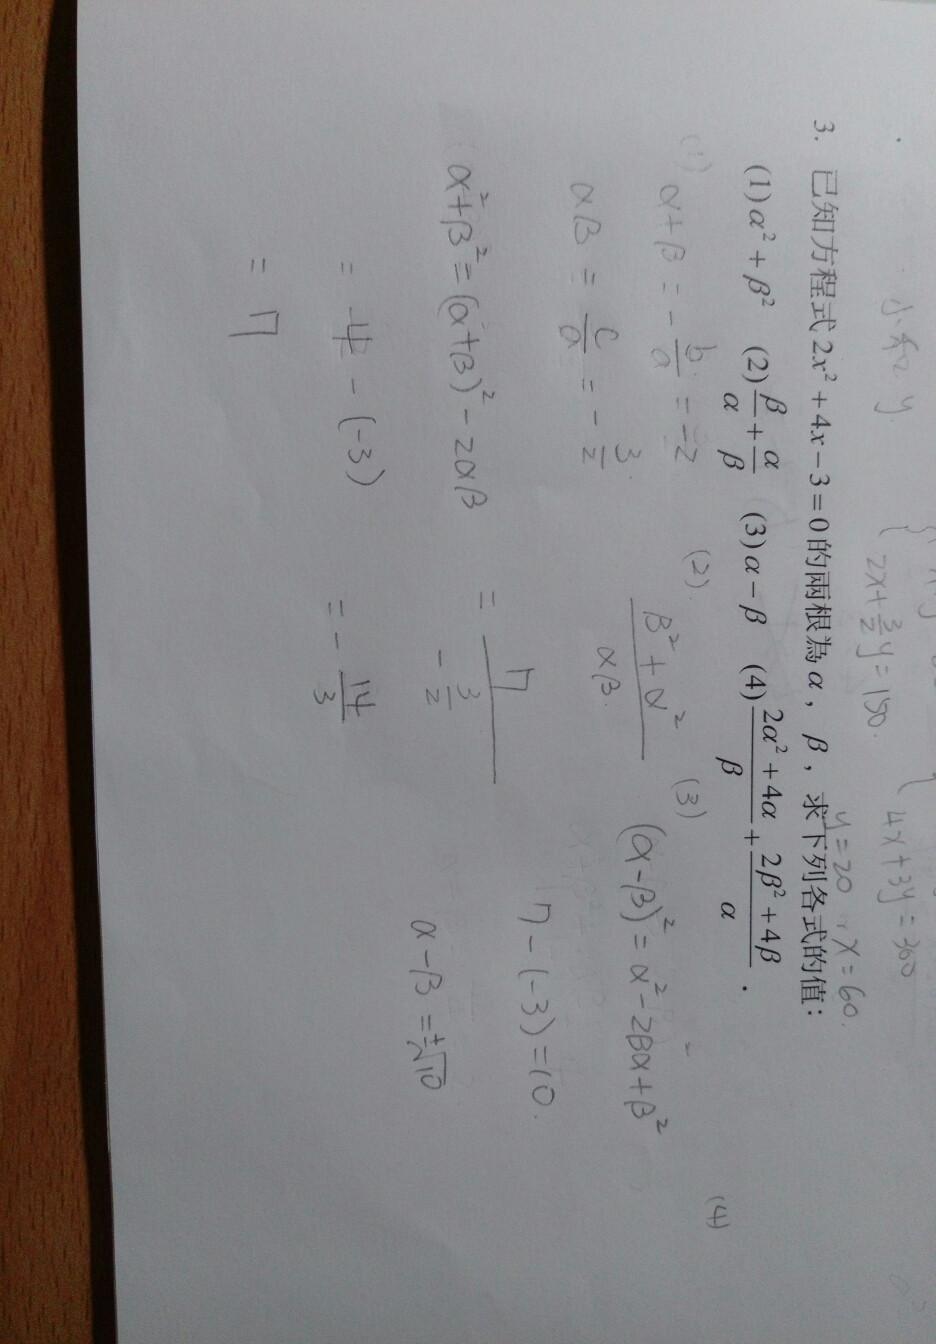 小系2 y
2x+3/2y=150.
4x+3y=360
y=20, x=60.
3. 已知方程式2x²+4x−3=0的兩根為α，β，求下列各式的值：
(1)α²+β² (2)β/α+α/β (3)α−β (4)(2α²+4α)/β+(2β²+4β)/α．
(1) α+β=-b/a=-2
αβ=c/a=-3/2
α²+β²=(α+β)²-2αβ
=4-(-3)
=7
(2). (β²+α²)/αβ
=7/(-3/2)
=-14/3
(3) (α-β)²=α²-2βα+β²
7-(-3)=10.
α-β=±√10
(4)